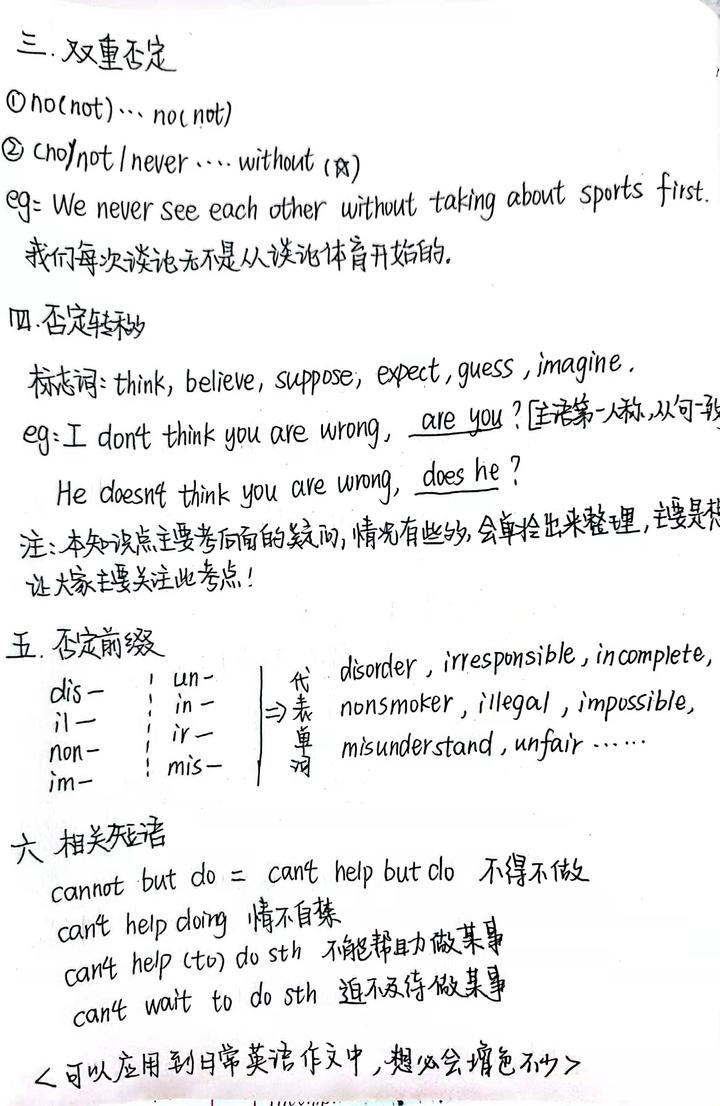 三. 双重否定
① no(not)… no(not)
② (no)/not/never …. without (☆)
eg: We never see each other without taking about sports first.
我们每次谈论无不是从谈论体育开始的.
四. 否定转移
标志词: think, believe, suppose, expect, guess, imagine.
eg: I don't think you are wrong, are you? [主语第一人称,从句一致
He doesn't think you are wrong, does he?
注: 本知识点主要考后面的疑问, 情况有些多, 会单拎出来整理, 主要是想
让大家主要关注此考点!
五. 否定前缀
dis- un-
il- in-
non- ir-
im- mis-
⇒ 代表单词
disorder, irresponsible, incomplete,
nonsmoker, illegal, impossible,
misunderstand, unfair ……
六 相关短语
cannot but do = can't help but do 不得不做
can't help doing 情不自禁
can't help (to) do sth 不能帮助做某事
can't wait to do sth 迫不及待做某事
<可以应用到日常英语作文中, 想必会增色不少>